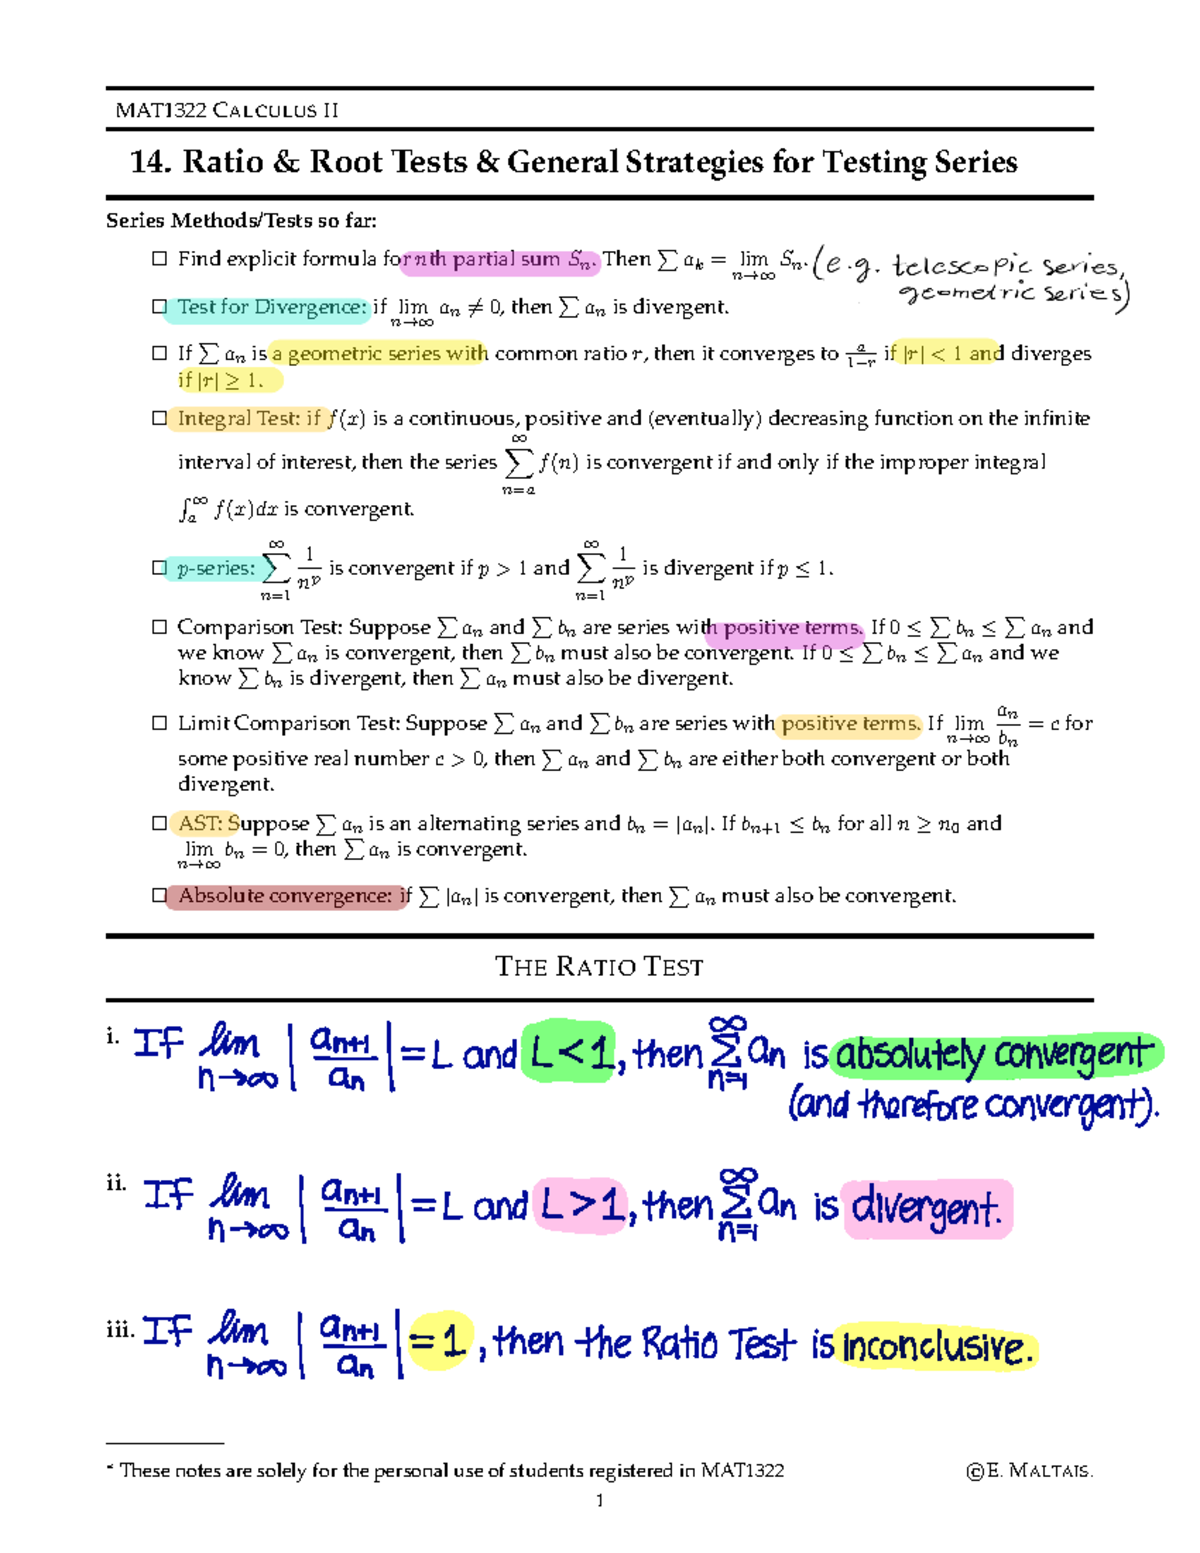 MAT1322 CALCULUS II
14. Ratio & Root Tests & General Strategies for Testing Series
Series Methods/Tests so far:
□ Find explicit formula for nth partial sum Sₙ. Then ∑ aₖ = lim n→∞ Sₙ. (e.g. telescopic series,
geometric series)
□ Test for Divergence: if lim n→∞ aₙ ≠ 0, then ∑ aₙ is divergent.
□ If ∑ aₙ is a geometric series with common ratio r, then it converges to a/(1−r) if |r| < 1 and diverges
if |r| ≥ 1.
□ Integral Test: if f(x) is a continuous, positive and (eventually) decreasing function on the infinite
interval of interest, then the series ∑ n=a ∞ f(n) is convergent if and only if the improper integral
∫ₐ^∞ f(x)dx is convergent.
□ p-series: ∑ n=1 ∞ 1/nᵖ is convergent if p > 1 and ∑ n=1 ∞ 1/nᵖ is divergent if p ≤ 1.
□ Comparison Test: Suppose ∑ aₙ and ∑ bₙ are series with positive terms. If 0 ≤ ∑ bₙ ≤ ∑ aₙ and
we know ∑ aₙ is convergent, then ∑ bₙ must also be convergent. If 0 ≤ ∑ bₙ ≤ ∑ aₙ and we
know ∑ bₙ is divergent, then ∑ aₙ must also be divergent.
□ Limit Comparison Test: Suppose ∑ aₙ and ∑ bₙ are series with positive terms. If lim n→∞ aₙ/bₙ = c for
some positive real number c > 0, then ∑ aₙ and ∑ bₙ are either both convergent or both
divergent.
□ AST: Suppose ∑ aₙ is an alternating series and bₙ = |aₙ|. If bₙ₊₁ ≤ bₙ for all n ≥ n₀ and
lim n→∞ bₙ = 0, then ∑ aₙ is convergent.
□ Absolute convergence: if ∑ |aₙ| is convergent, then ∑ aₙ must also be convergent.
THE RATIO TEST
i. If lim n→∞ |aₙ₊₁/aₙ| = L and L < 1, then ∑ n=1 ∞ aₙ is absolutely convergent
(and therefore convergent).
ii. If lim n→∞ |aₙ₊₁/aₙ| = L and L > 1, then ∑ n=1 ∞ aₙ is divergent.
iii. If lim n→∞ |aₙ₊₁/aₙ| = 1, then the Ratio Test is inconclusive.
* These notes are solely for the personal use of students registered in MAT1322 ©E. MALTAIS.
1